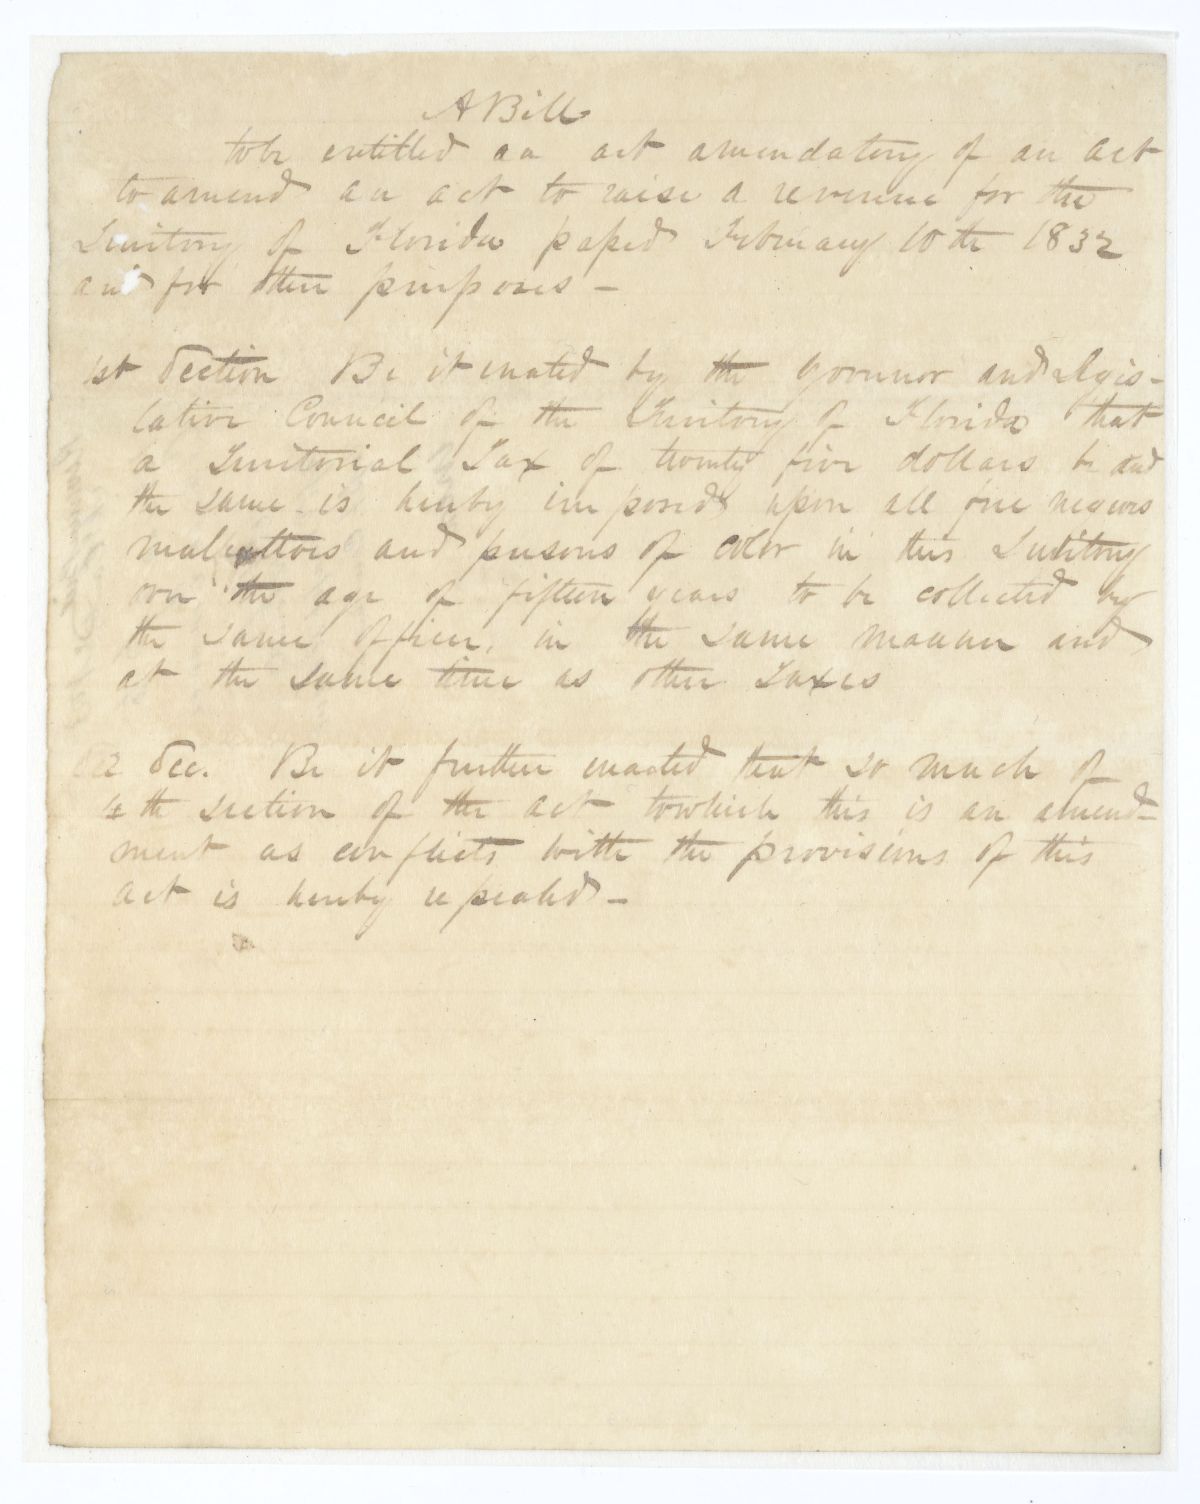 A Bill
to be entitled an act amendatory of an act
to amend an act to raise a revenue for the
Territory of Florida passed February 10th 1832
and for other purposes –
1st Section Be it enacted by the Governor and Legis-
lative Council of the Territory of Florida that
a Territorial Tax of twenty five dollars be and
the same is hereby imposed upon all free negroes
mulattoes and persons of color in this Territory
over the age of fifteen years to be collected by
the same officer, in the same manner and
at the same time as other Taxes
2 Sec. Be it further enacted that so much of
4th section of the act to which this is an amend-
ment as conflicts with the provisions of this
act is hereby repealed –